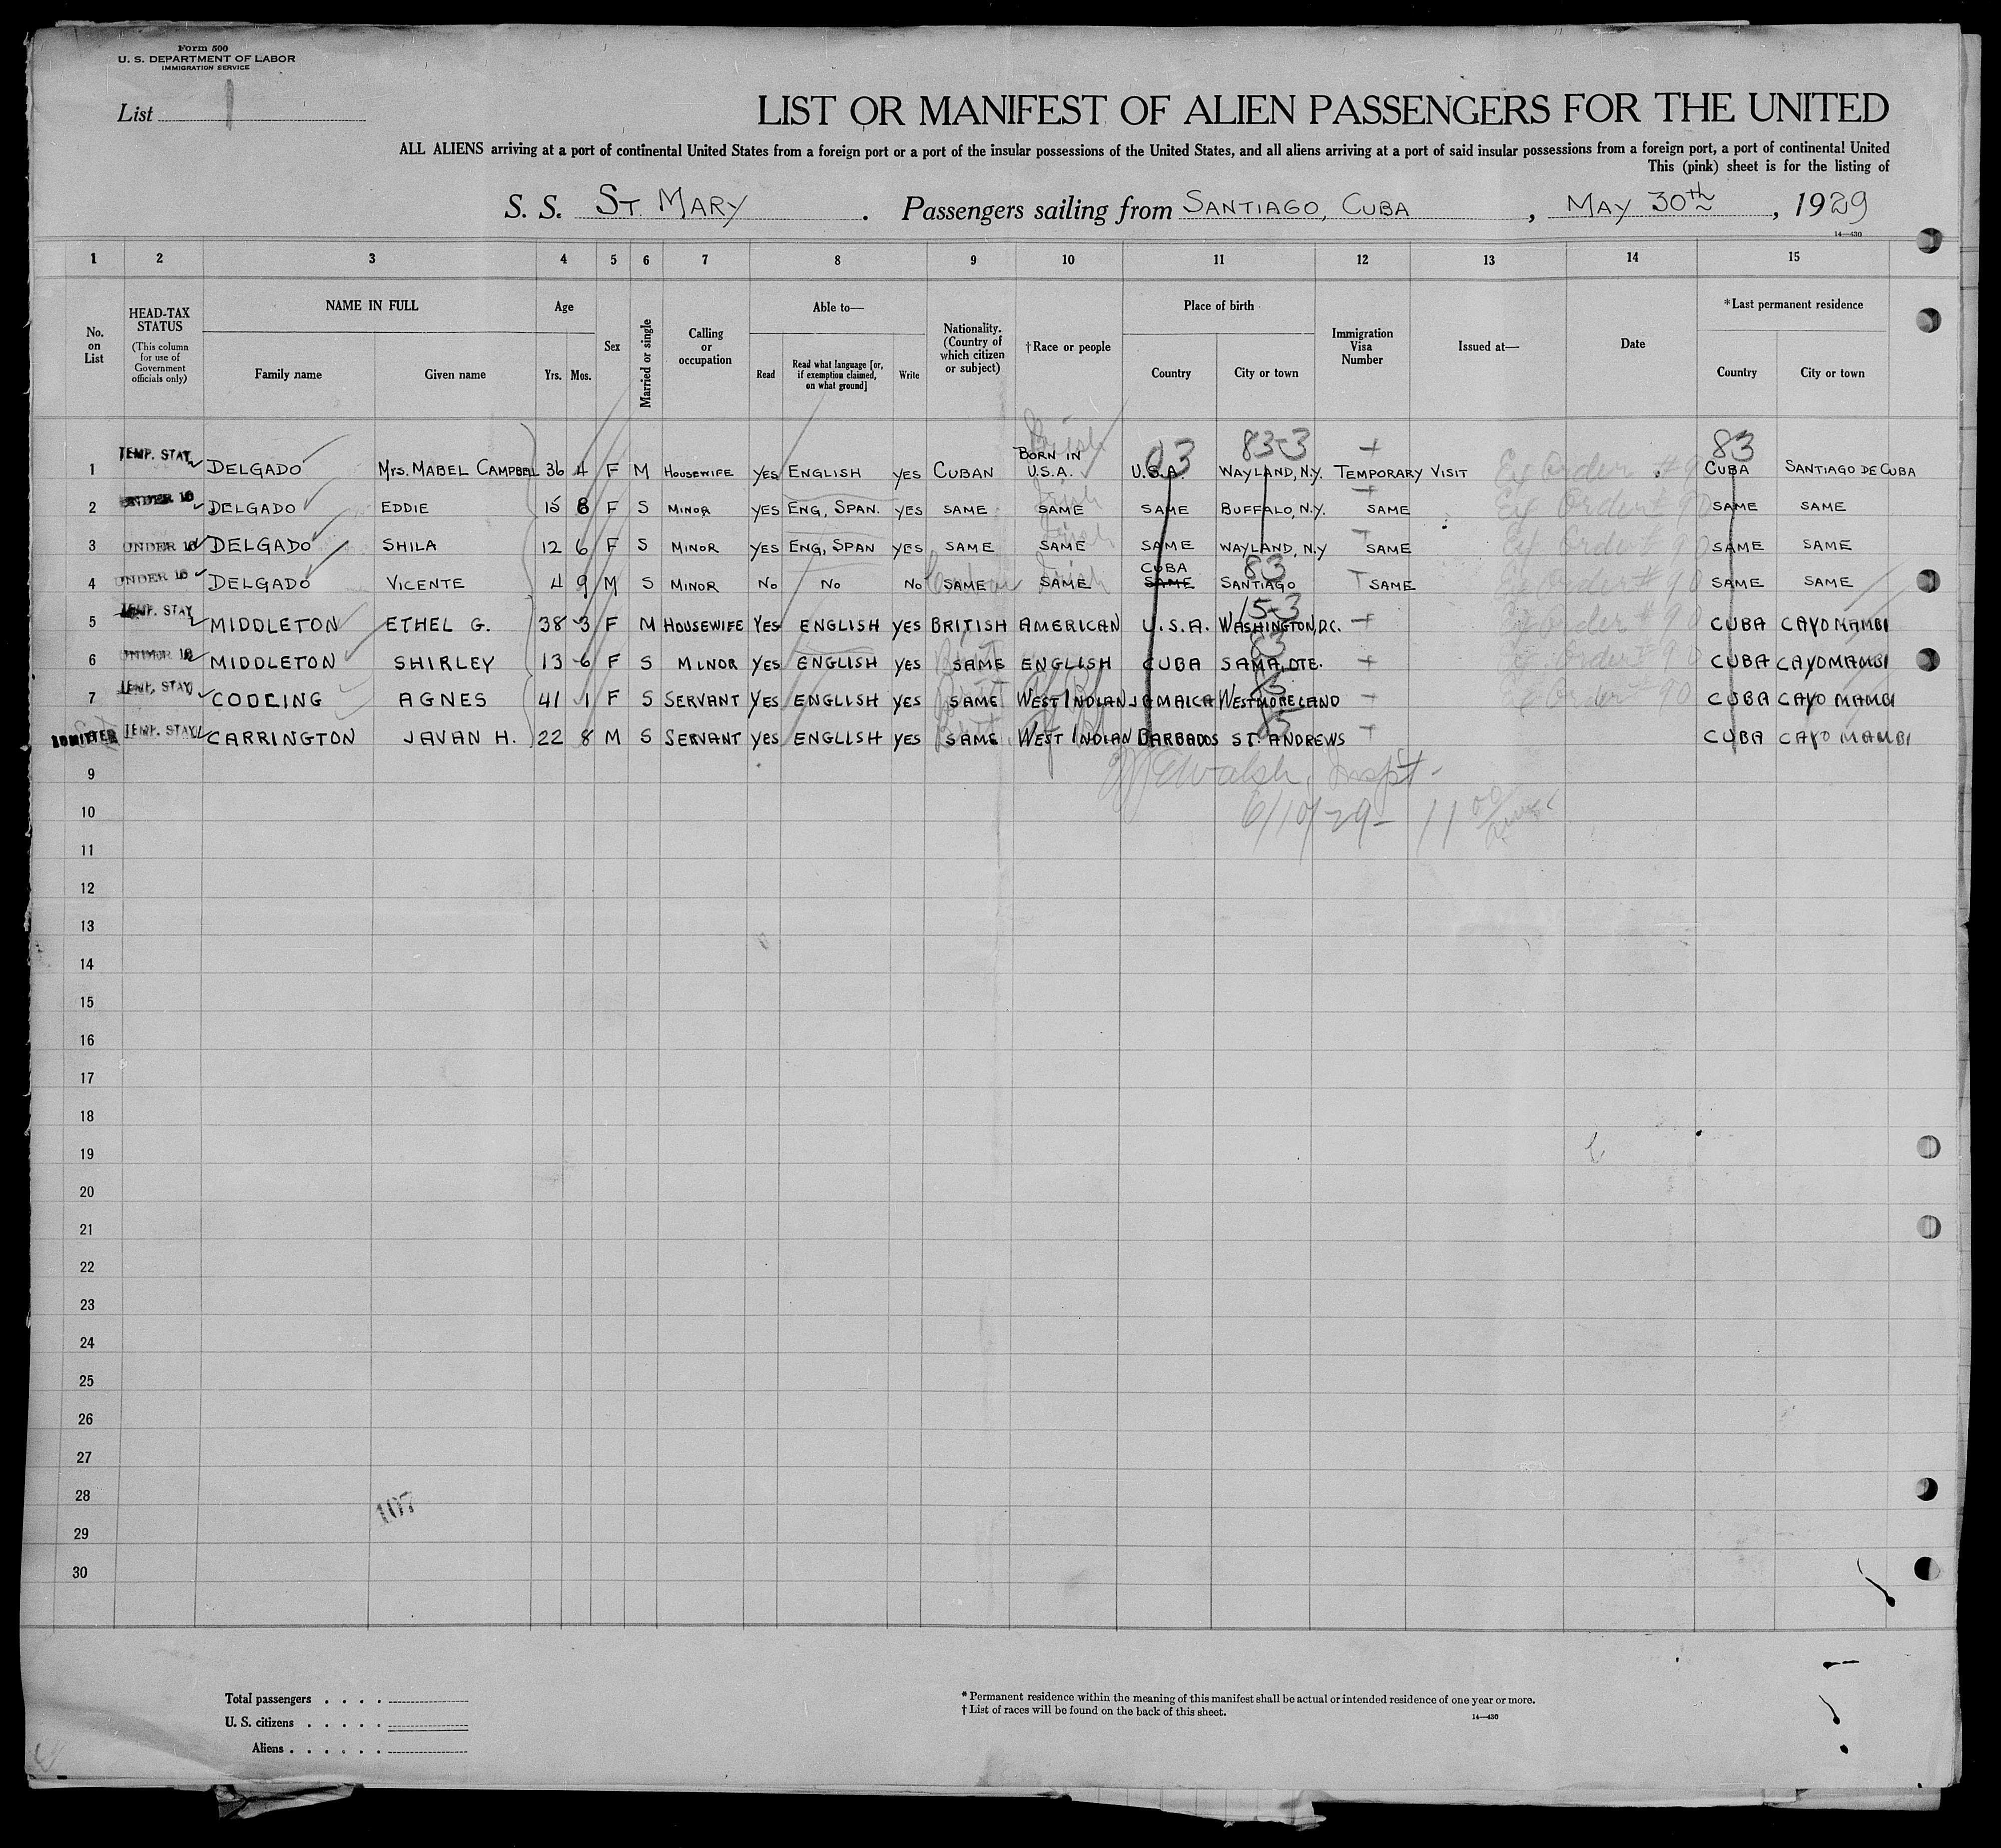 Form 500
U. S. DEPARTMENT OF LABOR
IMMIGRATION SERVICE
List 1
LIST OR MANIFEST OF ALIEN PASSENGERS FOR THE UNITED
ALL ALIENS arriving at a port of continental United States from a foreign port or a port of the insular possessions of the United States, and all aliens arriving at a port of said insular possessions from a foreign port, a port of continental United
This (pink) sheet is for the listing of
S. S. ST. MARY . Passengers sailing from SANTIAGO, CUBA , MAY 30th , 1929
14—430
1 2 3 4 5 6 7 8 9 10 11 12 13 14 15
No. on List
HEAD-TAX STATUS (This column for use of Government officials only)
NAME IN FULL Family name Given name
Age Yrs. Mos.
Sex
Married or single
Calling or occupation
Able to— Read Read what language [or, if exemption claimed, on what ground] Write
Nationality. (Country of which citizen or subject)
†Race or people
Place of birth Country City or town
Immigration Visa Number
Issued at—
Date
*Last permanent residence Country City or town
83-3 03 83
1 TEMP. STAY DELGADO Mrs. MABEL CAMPBELL 36 4 F M HOUSEWIFE YES ENGLISH YES CUBAN BORN IN U.S.A. U.S.A. WAYLAND, N.Y. TEMPORARY VISIT Ex Order #90 CUBA SANTIAGO DE CUBA
2 UNDER 16 DELGADO EDDIE 15 8 F S MINOR YES ENG, SPAN. YES SAME SAME SAME BUFFALO, N.Y. SAME Ex Order #90 SAME SAME
3 UNDER 16 DELGADO SHILA 12 6 F S MINOR YES ENG, SPAN YES SAME SAME SAME WAYLAND, N.Y SAME Ex Order #90 SAME SAME
4 UNDER 16 DELGADO VICENTE 4 9 M S MINOR NO NO NO SAME SAME CUBA SAME SANTIAGO 83 SAME Ex Order #90 SAME SAME
5 TEMP. STAY MIDDLETON ETHEL G. 38 3 F M HOUSEWIFE YES ENGLISH YES BRITISH AMERICAN U.S.A. WASHINGTON, D.C. 15-3 Ex Order #90 CUBA CAYO MAMBI
6 UNDER 16 MIDDLETON SHIRLEY 13 6 F S MINOR YES ENGLISH YES SAME ENGLISH CUBA SAMA, OTE. 83 Ex Order #90 CUBA CAYO MAMBI
7 TEMP. STAY CODLING AGNES 41 1 F S SERVANT YES ENGLISH YES SAME WEST INDIAN JAMAICA WESTMORELAND Ex Order #90 CUBA CAYO MAMBI
ADMITTED TEMP. STAY CARRINGTON JAVAN H. 22 8 M S SERVANT YES ENGLISH YES SAME WEST INDIAN BARBADOS ST. ANDREWS CUBA CAYO MAMBI
9 Walsh, Inspt.
10 6/10/29 - 11 00
11
12
13
14
15
16
17
18
19
20
21
22
23
24
25
26
27
28 107
29
30
Total passengers . . . .
U. S. citizens . . . . .
Aliens . . . . . .
* Permanent residence within the meaning of this manifest shall be actual or intended residence of one year or more.
† List of races will be found on the back of this sheet.
14—430